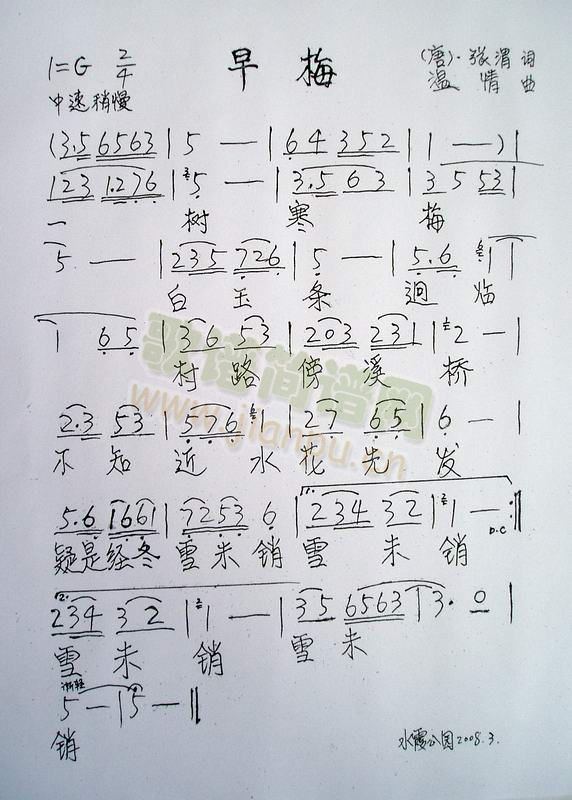 1=G 2/4 早 梅 (唐)·张渭 词
中速稍慢 温 情 曲
(3.5 6563 | 5 — | 64 352 | 1 — ) |
123 1.276 | 5 — | 3.5 63 | 3 5 53 |
一 树 寒 梅
5 — — | 235 726 | 5 — | 5.6 1 |
白 玉 条 迥 临
1 65 | 36 53 | 203 231 | 2 — |
村 路 傍 溪 桥
2.3 53 | 56 1 | 27 65 | 6 — |
不 知 近 水 花 先 发
5.6 1661 | 7253 6 | 234 32 | 1 — :||
D.C
疑是经冬 雪未销 雪 未 销
234 32 | 1 — | 35 6563 | 3. 0 |
雪 未 销 雪 未
渐轻
5 — | 5 — ||
销
水霞公园2008.3.
歌谱简谱网
www.jianpu.cn